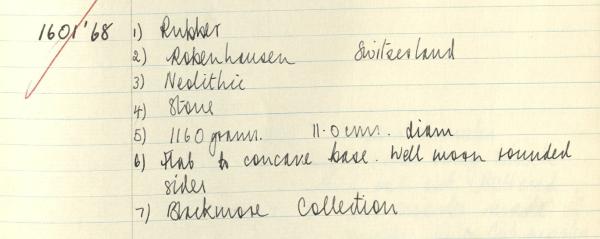 1601'68 1) Rubber
2) Robenhausen Switzerland
3) Neolithic
4) Stone
5) 1160 grams. 11.0 cms. diam
6) Flat to concave base. Well worn rounded
sides
7) Blackmore Collection